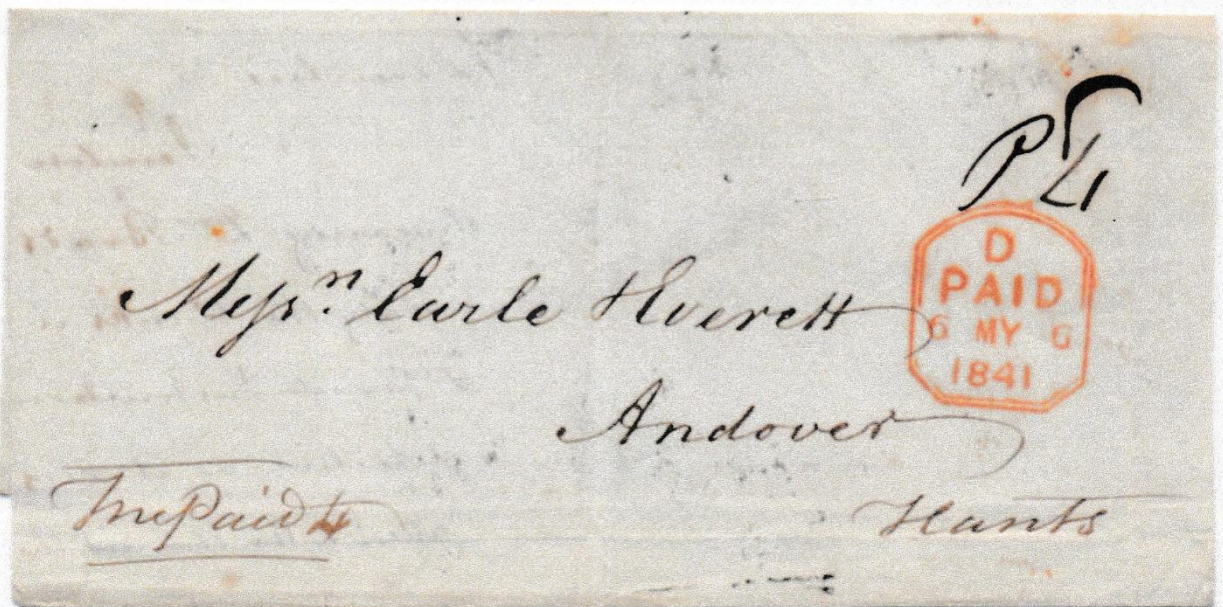 P 4
D
PAID
6 MY 6
1841
Messrs. Earle Everett
Andover
Hants
Paid 4